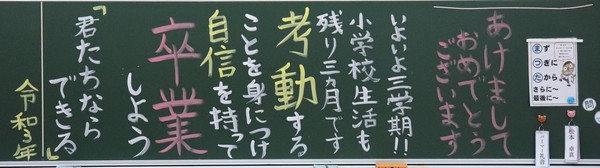 あけまして
おめでとう
ございます
いよいよ三学期!!
小学校生活も
残り三ヵ月です
考動する
ことを身につけ
自信を持って
卒業
しよう
『君たちなら
できる』
令和3年
まず
つぎに
たから
さらに〜
最後に〜
問